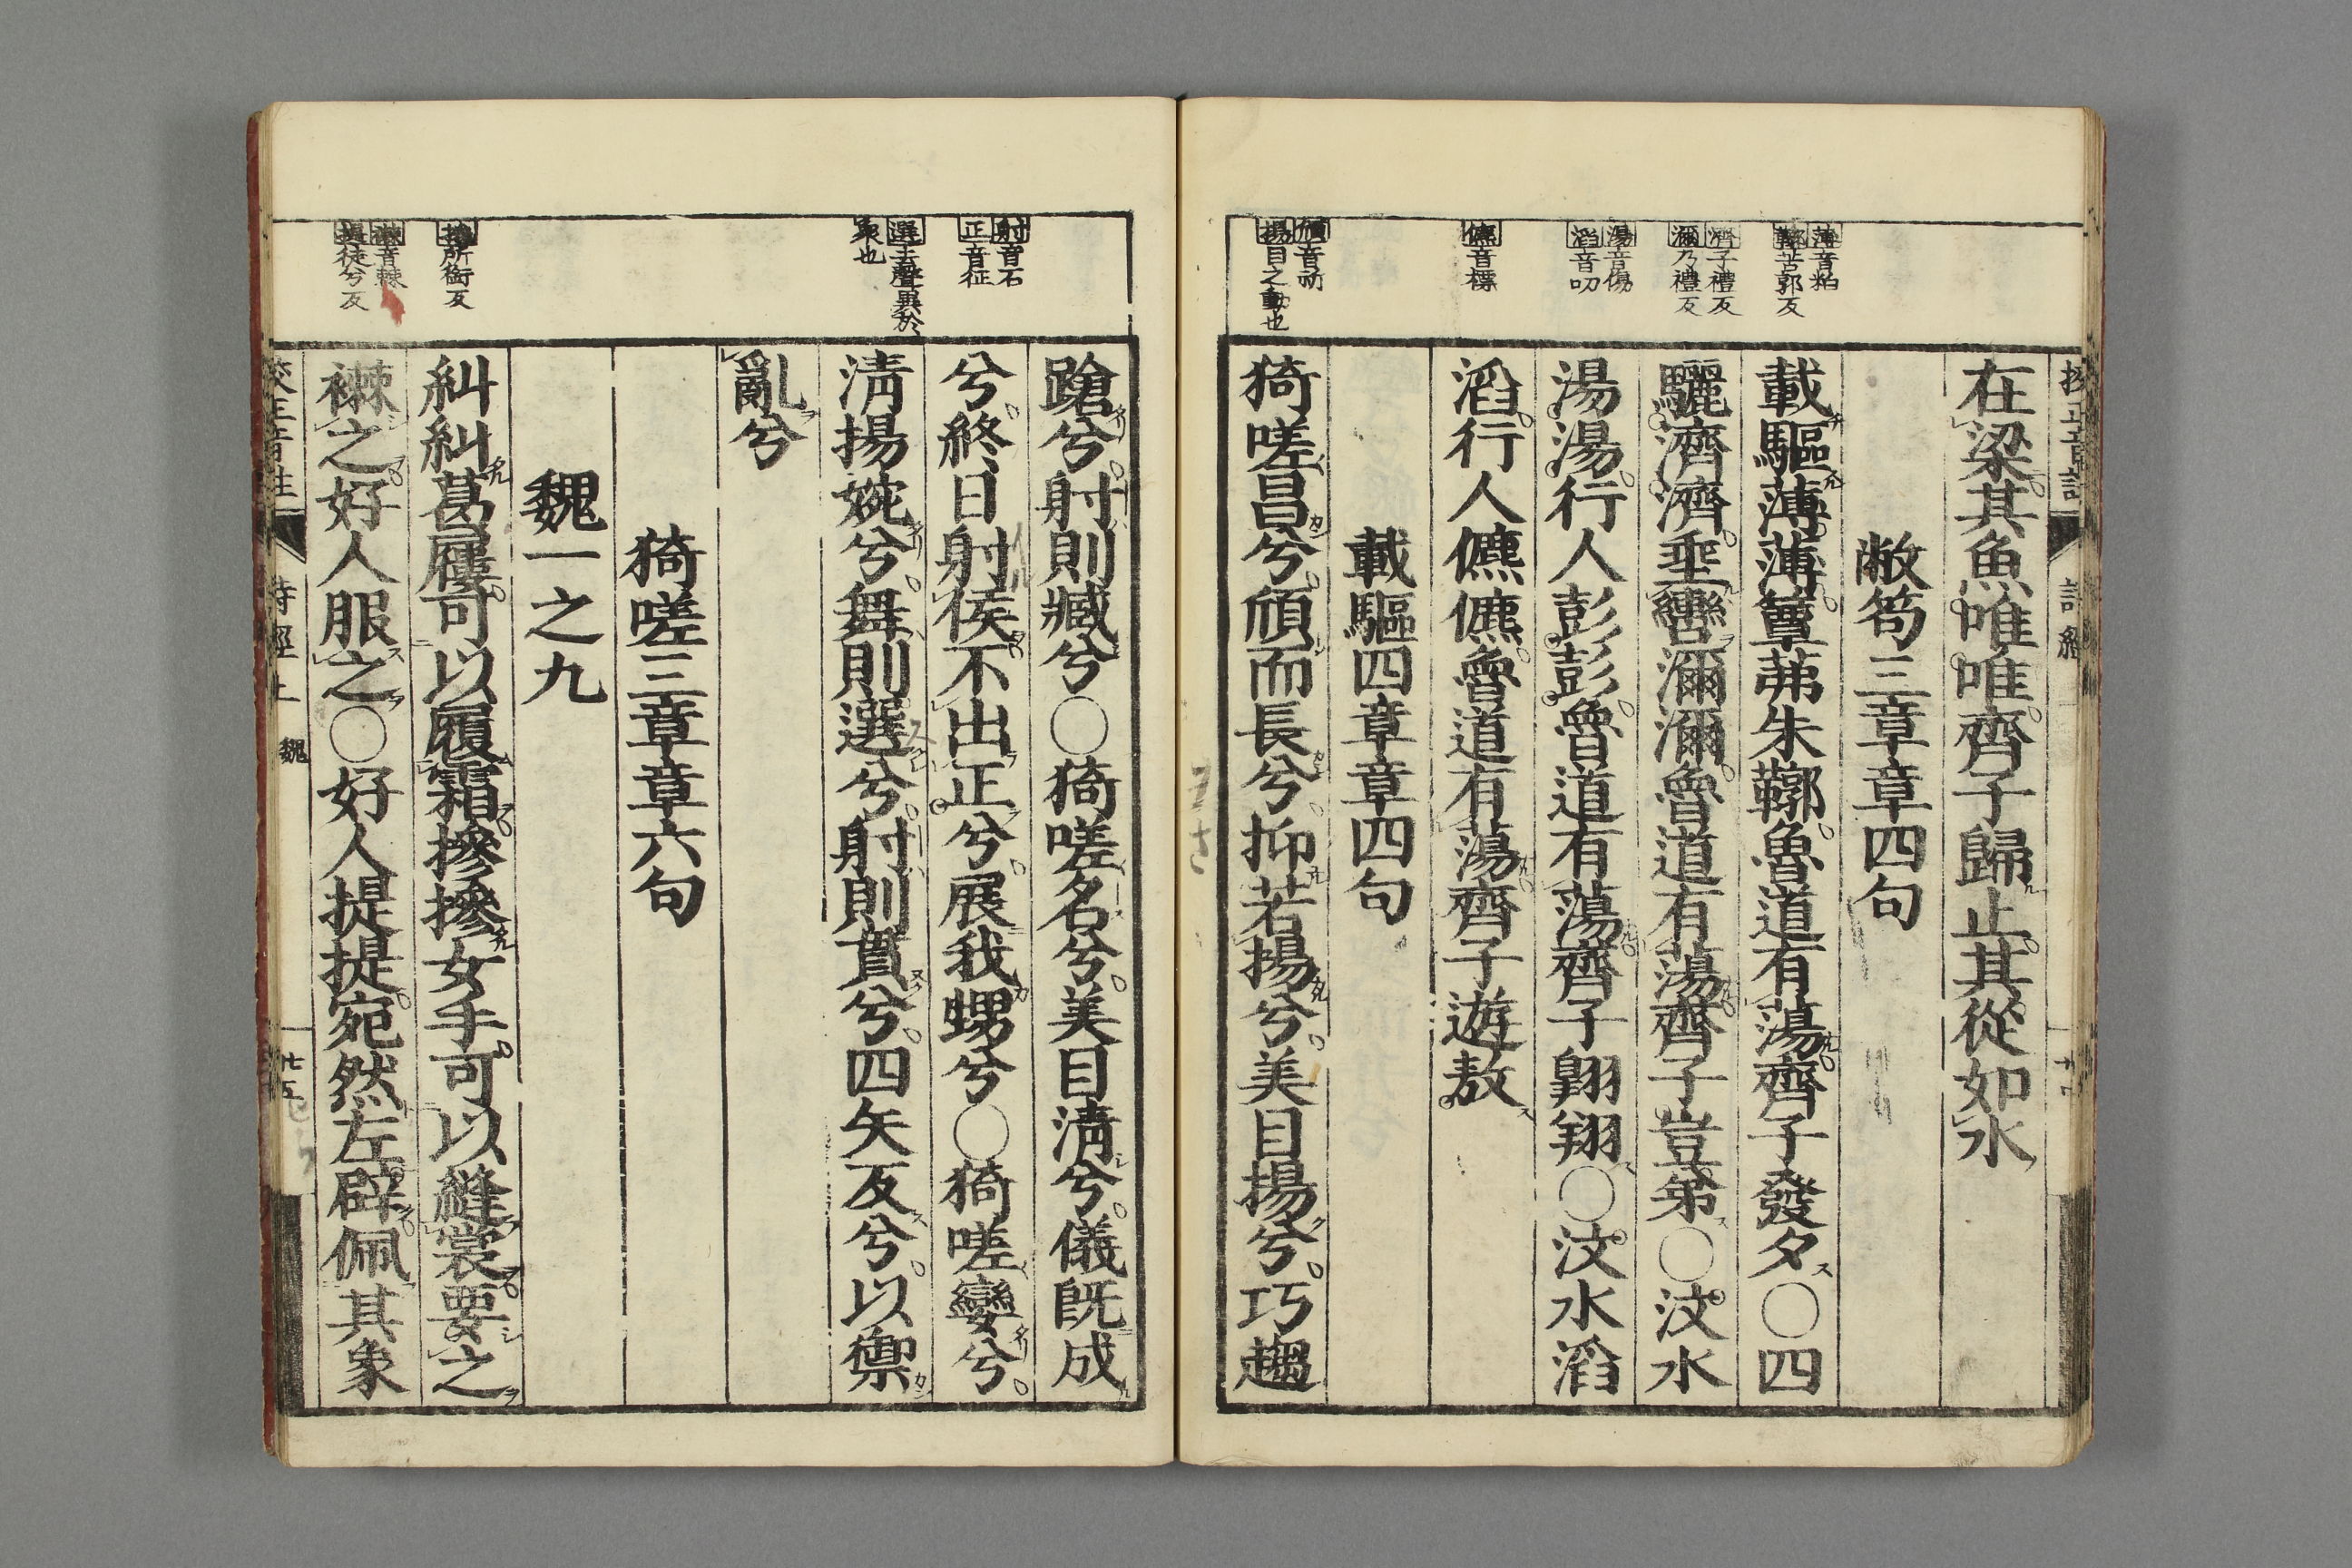 薄音粕
鞹苦郭反
濟子禮反
瀰乃禮反
湯音傷
滔音叨
儦音標
頎音祈
揚目之動也
在梁其魚唯唯齊子歸止其從如水
敝笱三章章四句
載驅薄薄簟茀朱鞹魯道有蕩齊子發夕○四
驪濟濟垂轡瀰瀰魯道有蕩齊子豈弟○汶水
湯湯行人彭彭魯道有蕩齊子翺翔○汶水滔
滔行人儦儦魯道有蕩齊子遊敖
載驅四章章四句
猗嗟昌兮頎而長兮抑若揚兮美目揚兮巧趨
射音石
正音征
選去聲異於
衆也
摻所銜反
襋音棘
提徒兮反
蹌兮射則臧兮○猗嗟名兮美目淸兮儀旣成
兮終日射侯不出正兮展我甥兮○猗嗟孌兮
淸揚婉兮舞則選兮射則貫兮四矢反兮以禦
亂兮
猗嗟三章章六句
魏一之九
糾糾葛屨可以履霜摻摻女手可以縫裳要之
襋之好人服之○好人提提宛然左辟佩其象
詩經上 魏
廿五